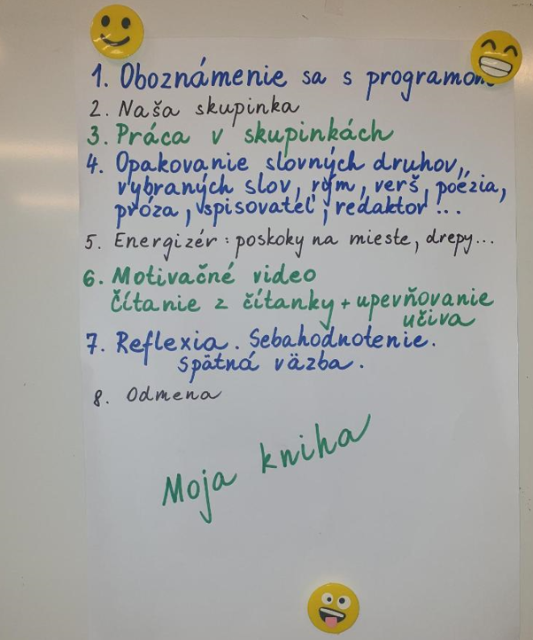 1. Oboznámenie sa s programom
2. Naša skupinka
3. Práca v skupinkách
4. Opakovanie slovných druhov,
vybraných slov, rým, verš, poézia,
próza, spisovateľ, redaktor...
5. Energizér: poskoky na mieste, drepy...
6. Motivačné video
čítanie z čítanky + upevňovanie
učiva
7. Reflexia. Sebahodnotenie.
Spätná väzba.
8. Odmena
Moja kniha